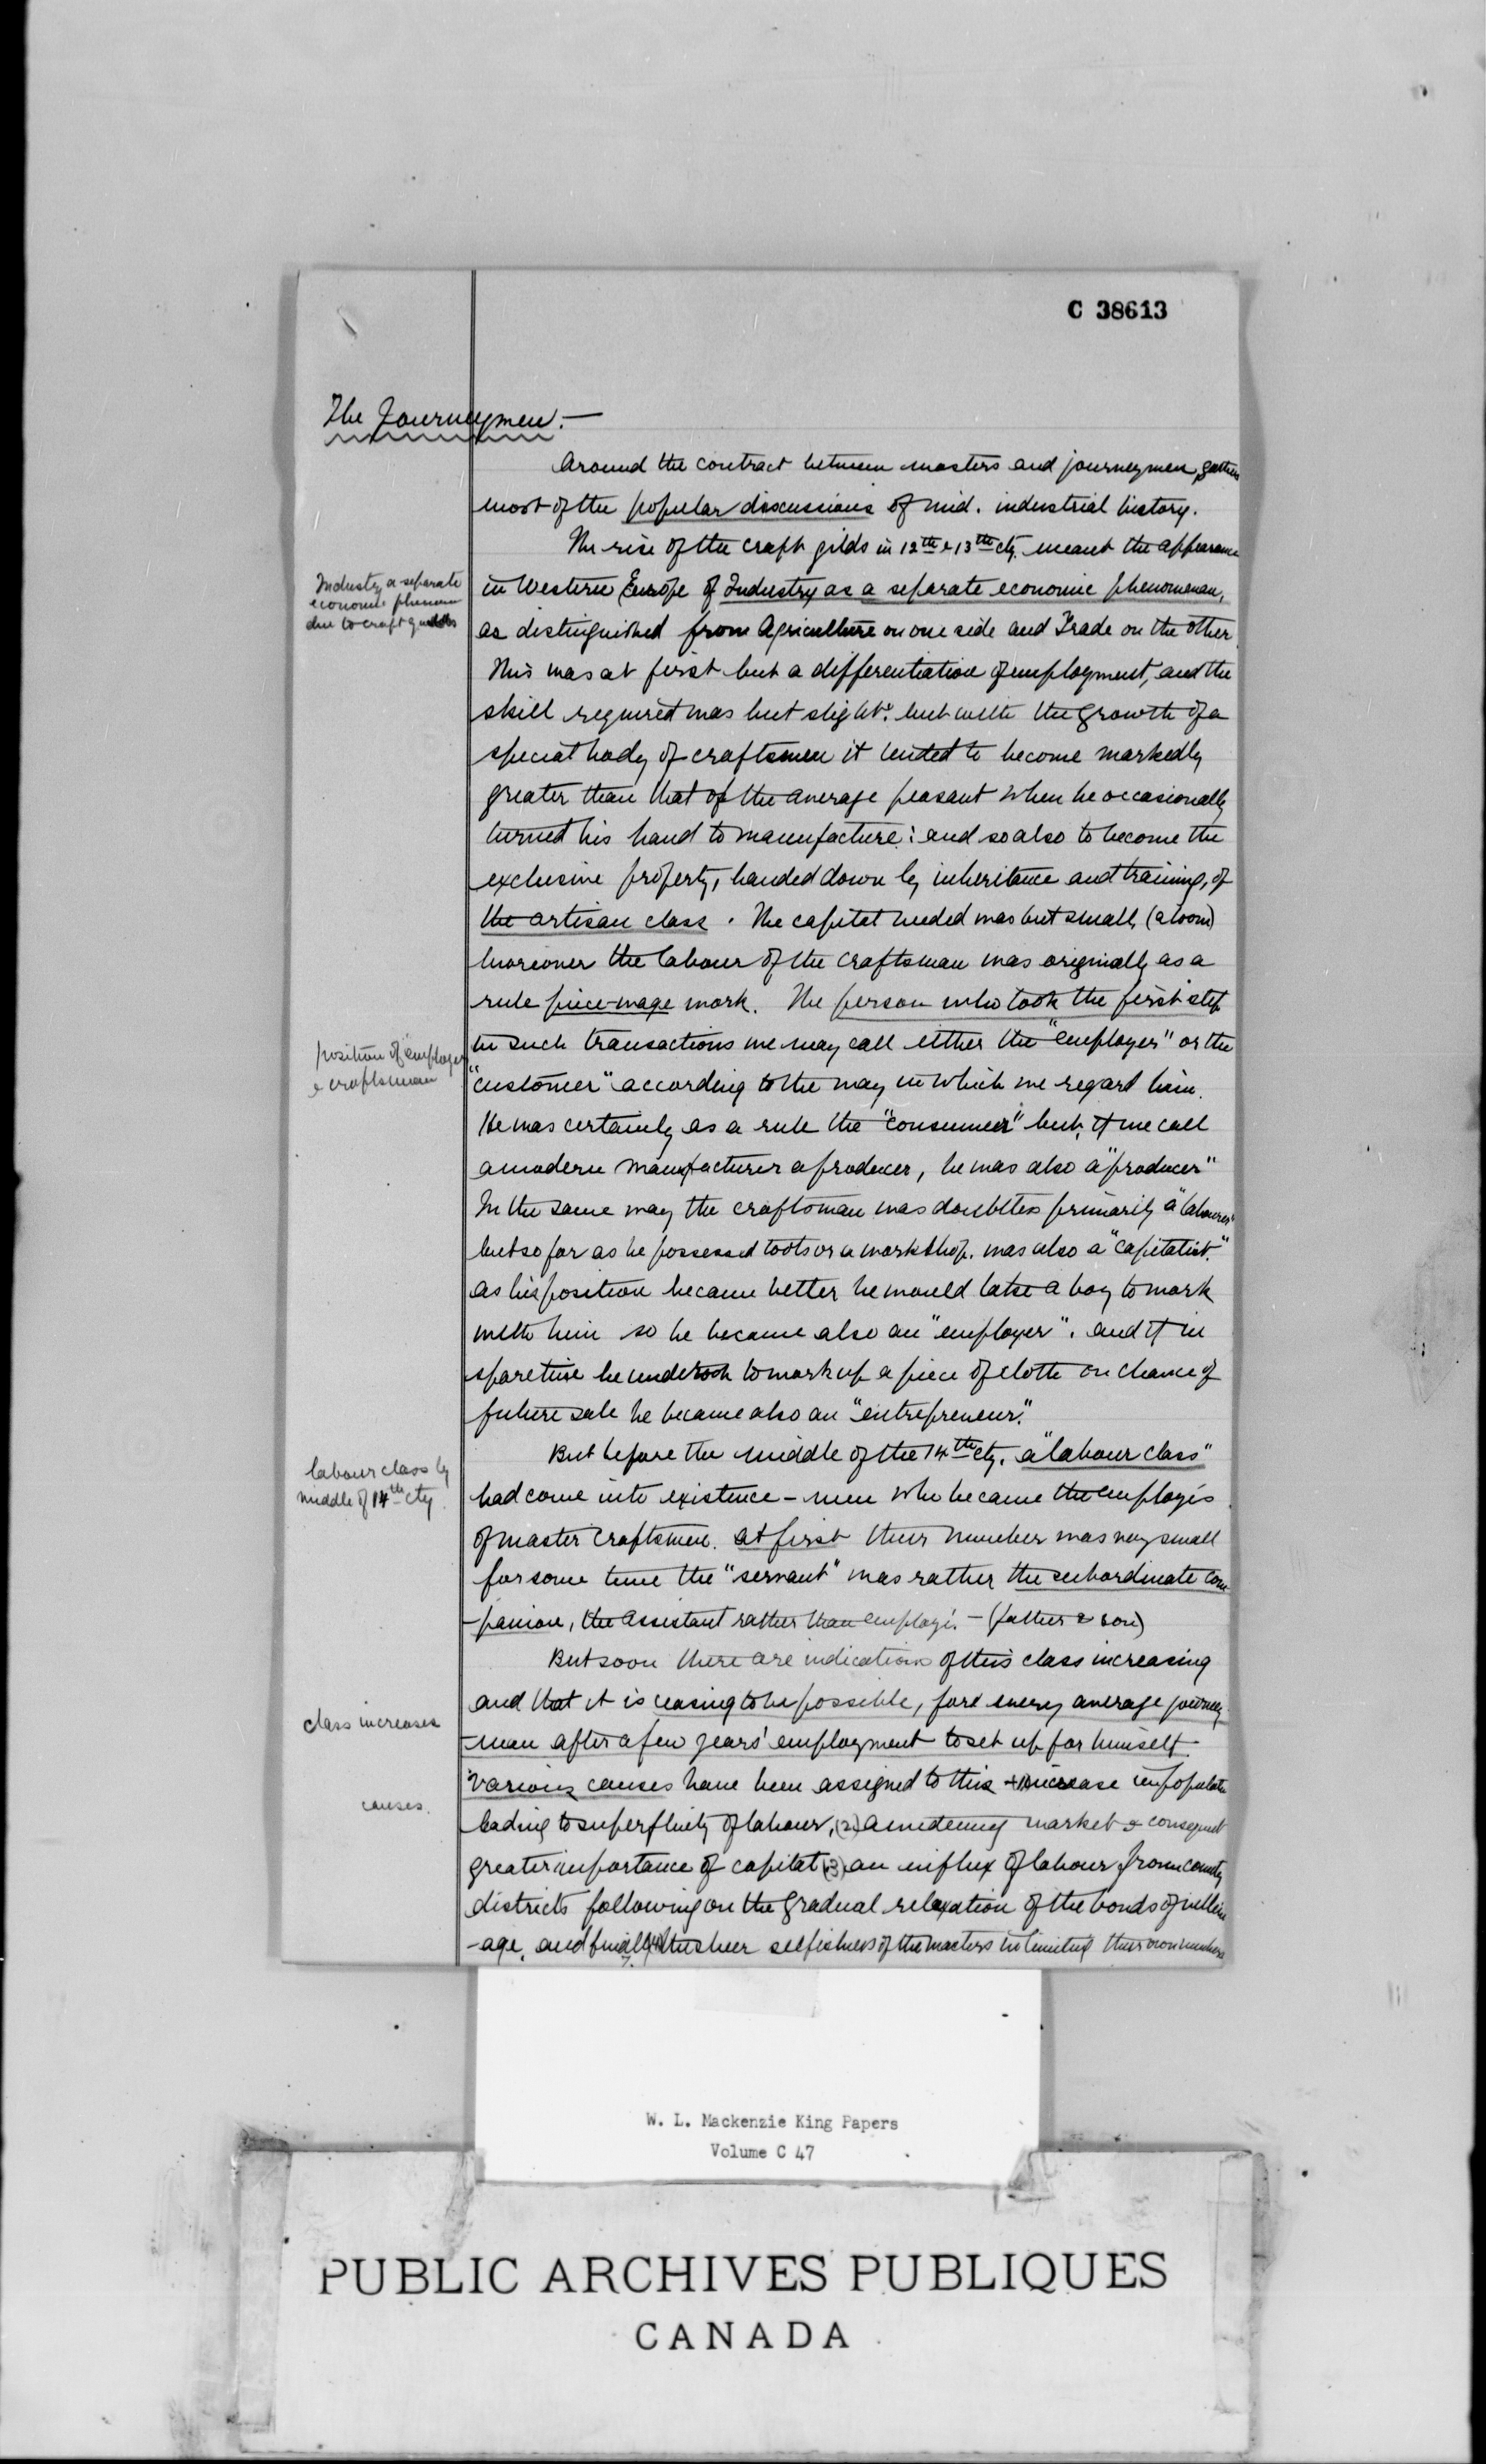 C 38613
The Journeymen. —
Around the contract between masters and journeymen, gathers
most of the popular discussions of mid. industrial history.
The rise of the craft gilds in 12th & 13th cty. meant the appearance
Industry a separate
economic phenom
due to craft guilds
in Western Europe of Industry as a separate economic phenomenon,
as distinguished from Agriculture on one side and Trade on the other.
This was at first but a differentiation of employment, and the
skill required was but slight. but with the growth of a
special body of craftsmen it tended to become markedly
greater than that of the average peasant when he occasionally
turned his hand to manufacture: and so also to become the
exclusive property, handed down by inheritance and training, of
the artisan class. The capital needed was but small, (a loom)
Moreover the labour of the craftsman was originally as a
rule piece-wage work. The person who took the first step
position of employer
& craftsman
in such transactions we may call either the "employer" or the
"customer" according to the way in which we regard him.
He was certainly as a rule the "consumer" but, if we call
a modern manufacturer a producer, he was also a "producer"
In the same way the craftsman was doubtless primarily a "labourer"
but so far as he possessed tools or a workshop. was also a "capitalist."
As his position became better he would take a boy to work
with him so he became also an "employer". and if in
spare time he undertook to work up a piece of cloth on chance of
future sale he became also an "entrepreneur."
labour class by
middle of 14th cty.
But before the middle of the 14th cty. a "labour class"
had come into existence – men who became the employés
of master craftsmen. At first their number was very small
for some time the "servant" was rather the subordinate com
-panion, the assistant rather than employé. – (father & son)
But soon there are indications of this class increasing
class increases
and that it is ceasing to be possible, for every average journey
-man after a few years' employment to set up for himself.
causes.
Various causes have been assigned to this increase in populatn
leading to superfluity of labour, (2) a widening market & consequent
greater importance of capital (3) an influx of labour from country
districts following on the gradual relaxation of the bonds of villein
-age, and finally (4) the sheer selfishness of the masters in limiting their own numbers
W. L. Mackenzie King Papers
Volume C 47
PUBLIC ARCHIVES PUBLIQUES
CANADA